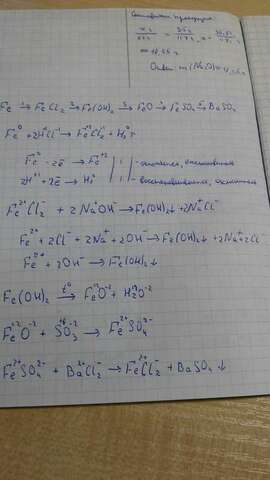 Составляем пропорцию:
Ответ: m(
Fe → FeCl₂ → Fe(OH)₂ → FeO → FeSO₄ → BaSO₄
Fe⁰ + 2H⁺Cl⁻ → Fe⁺²Cl₂⁻ + H₂⁰↑
Fe⁰ - 2ē → Fe⁺² | 1 | - окисление, восстановитель
2H⁺¹ + 2ē → H₂⁰ | 1 | - восстановление, окислитель
Fe²⁺Cl₂⁻ + 2Na⁺OH⁻ → Fe(OH)₂↓ + 2Na⁺Cl⁻
Fe²⁺ + 2Cl⁻ + 2Na⁺ + 2OH⁻ → Fe(OH)₂↓ + 2Na⁺ + 2Cl⁻
Fe²⁺ + 2OH⁻ → Fe(OH)₂↓
Fe(OH)₂ →(t°) Fe⁺²O⁻² + H₂⁺O⁻²
Fe⁺²O⁻² + S⁺⁶O₃⁻² → Fe²⁺SO₄²⁻
Fe²⁺SO₄²⁻ + Ba²⁺Cl₂⁻ → Fe²⁺Cl₂⁻ + BaSO₄↓